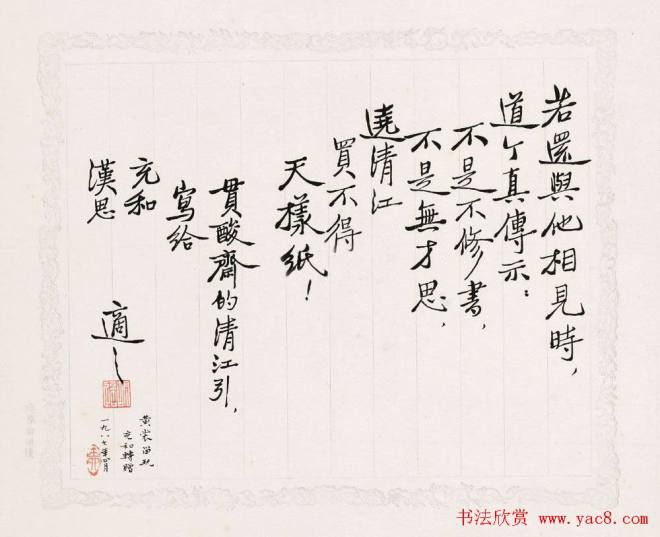 若還與他相見時，
道个真傳示：
不是不修書，
不是無才思，
遶清江
買不得
天樣紙！
貫酸齋的清江引，
寫給
充和
漢思
適之
黄裳留玩
充和轉贈
一九八七年四月
书法欣赏 www.yac8.com